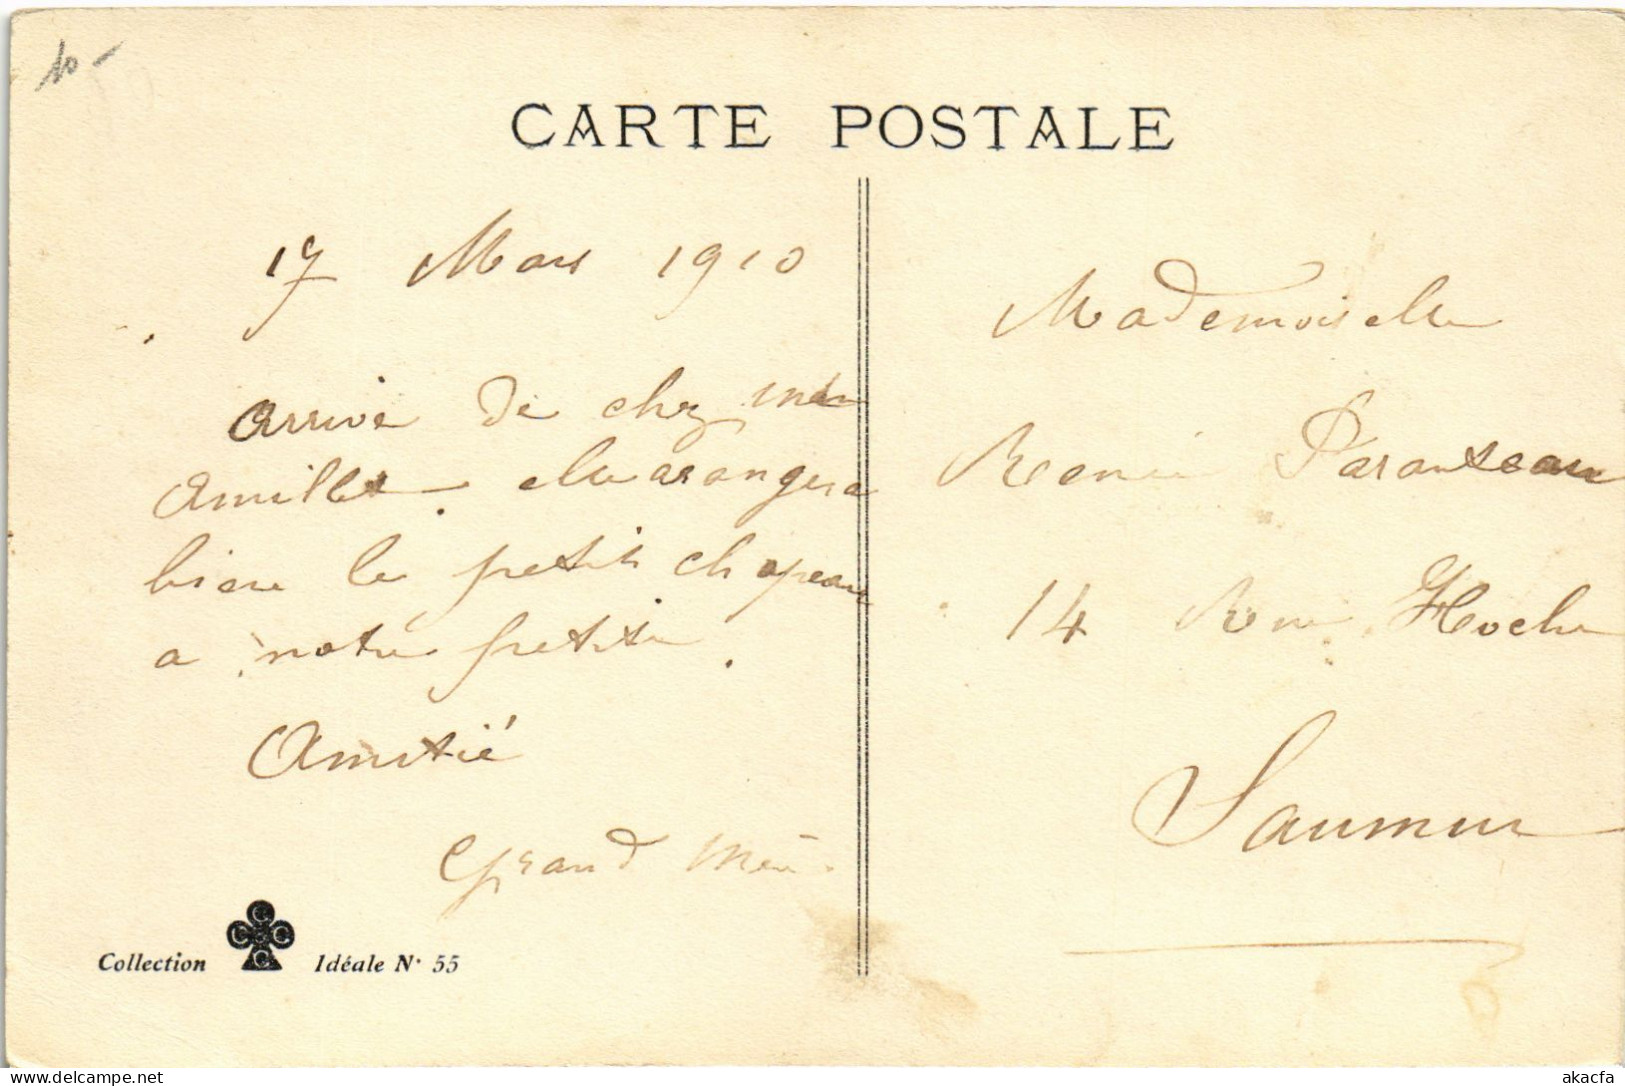 10-
CARTE POSTALE
17 Mars 1910
Arrive de chez
elle arangera
bien le petit chapeau
a notre petite.
Amitié
Grand Mère
Collection Idéale N° 55
Mademoiselle
Renée Paranteau
14 Rue Hoche
Saumur
akacfa
delcampe.net